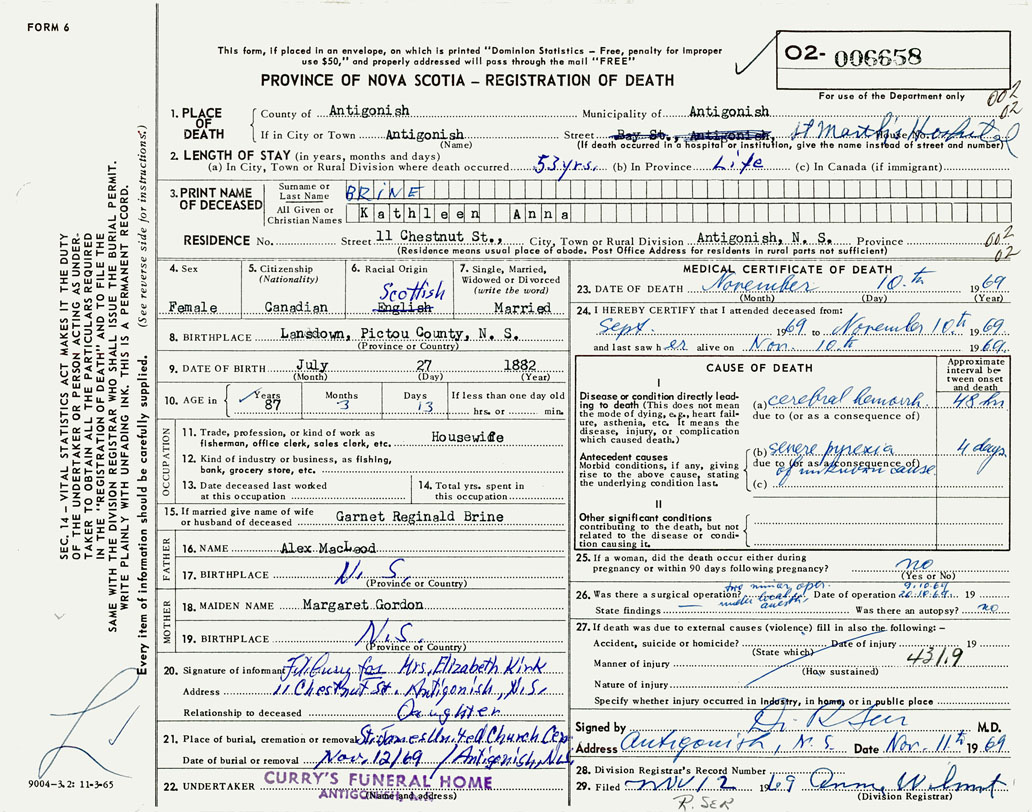 FORM 6
This form, if placed in an envelope, on which is printed "Dominion Statistics – Free, penalty for improper
use $50," and properly addressed will pass through the mail "FREE"
PROVINCE OF NOVA SCOTIA – REGISTRATION OF DEATH
O2- 006658
For use of the Department only
002
02
1. PLACE OF DEATH
County of Antigonish Municipality of Antigonish
If in City or Town Antigonish Street Bay St., Antigonish, St Martha's Hospital House No.
(Name) (If death occurred in a hospital or institution, give the name instead of street and number)
2. LENGTH OF STAY (in years, months and days)
(a) In City, Town or Rural Division where death occurred 53 yrs. (b) In Province Life (c) In Canada (if immigrant)
3. PRINT NAME OF DECEASED
Surname or Last Name BRINE
All Given or Christian Names Kathleen Anna
RESIDENCE No. Street 11 Chestnut St., City, Town or Rural Division Antigonish, N. S. Province
(Residence means usual place of abode. Post Office Address for residents in rural parts not sufficient)
002
02
4. Sex
Female
5. Citizenship
(Nationality)
Canadian
6. Racial Origin
Scottish
English
7. Single, Married,
Widowed or Divorced
(write the word)
Married
8. BIRTHPLACE Lansdown, Pictou County, N. S.
(Province or Country)
9. DATE OF BIRTH July 27 1882
(Month) (Day) (Year)
10. AGE in Years 87 Months 3 Days 13 If less than one day old
hrs. or min.
OCCUPATION
11. Trade, profession or kind of work as
fisherman, office clerk, sales clerk, etc. Housewife
12. Kind of industry or business, as fishing,
bank, grocery store, etc.
13. Date deceased last worked
at this occupation
14. Total yrs. spent in
this occupation
15. If married give name of wife
or husband of deceased Garnet Reginald Brine
FATHER
16. NAME Alex MacLeod
17. BIRTHPLACE N. S.
(Province or Country)
MOTHER
18. MAIDEN NAME Margaret Gordon
19. BIRTHPLACE N.S.
(Province or Country)
20. Signature of informant for Mrs. Elizabeth Kirk
Address 11 Chestnut St. Antigonish, N.S.
Relationship to deceased Daughter
21. Place of burial, cremation or removal St. James United Church Cem
Date of burial or removal Nov. 12/69 / Antigonish, N.S.
22. UNDERTAKER CURRY'S FUNERAL HOME
ANTIGONISH
(Name and address)
MEDICAL CERTIFICATE OF DEATH
23. DATE OF DEATH November 10.th 1969
(Month) (Day) (Year)
24. I HEREBY CERTIFY that I attended deceased from:
Sept. 1969 to November 10th 1969
and last saw her alive on Nov. 10th 1969.
CAUSE OF DEATH
Approximate
interval be-
tween onset
and death
I
Disease or condition directly lead-
ing to death (This does not mean
the mode of dying, e.g., heart fail-
ure, asthenia, etc. It means the
disease, injury, or complication
which caused death.)
(a) cerebral hemorrh. 48 hrs
due to (or as a consequence of)
Antecedent causes
Morbid conditions, if any, giving
rise to the above cause, stating
the underlying condition last.
(b) severe pyrexia 4 days
due to (or as a consequence of)
of unknown cause
(c)
II
Other significant conditions
contributing to the death, but not
related to the disease or condi-
tion causing it.
25. If a woman, did the death occur either during
pregnancy or within 90 days following pregnancy? no
(Yes or No)
26. Was there a surgical operation? two minor oper. under local anesth. Date of operation 9.10.69 20.10.69. 19
State findings — Was there an autopsy? no
27. If death was due to external causes (violence) fill in also the following: –
Accident, suicide or homicide? Date of injury 19
(State which)
Manner of injury 431.9
(How sustained)
Nature of injury
Specify whether injury occurred in industry, in home, or in public place
Signed by Dr. R Ser M.D.
Address Antigonish, N. S. Date Nov. 11th 1969
28. Division Registrar's Record Number
29. Filed NOV 12 1969 Anne Wilmot
(Division Registrar)
R. SER
SEC. 14 – VITAL STATISTICS ACT MAKES IT THE DUTY
OF THE UNDERTAKER OR PERSON ACTING AS UNDER-
TAKER TO OBTAIN ALL THE PARTICULARS REQUIRED
IN THE "REGISTRATION OF DEATH" AND TO FILE THE
SAME WITH THE DIVISION REGISTRAR WHO SHALL ISSUE THE BURIAL PERMIT.
WRITE PLAINLY WITH UNFADING INK. THIS IS A PERMANENT RECORD.
Every item of information should be carefully supplied. (See reverse side for instructions.)
9004-3.2: 11-3-65